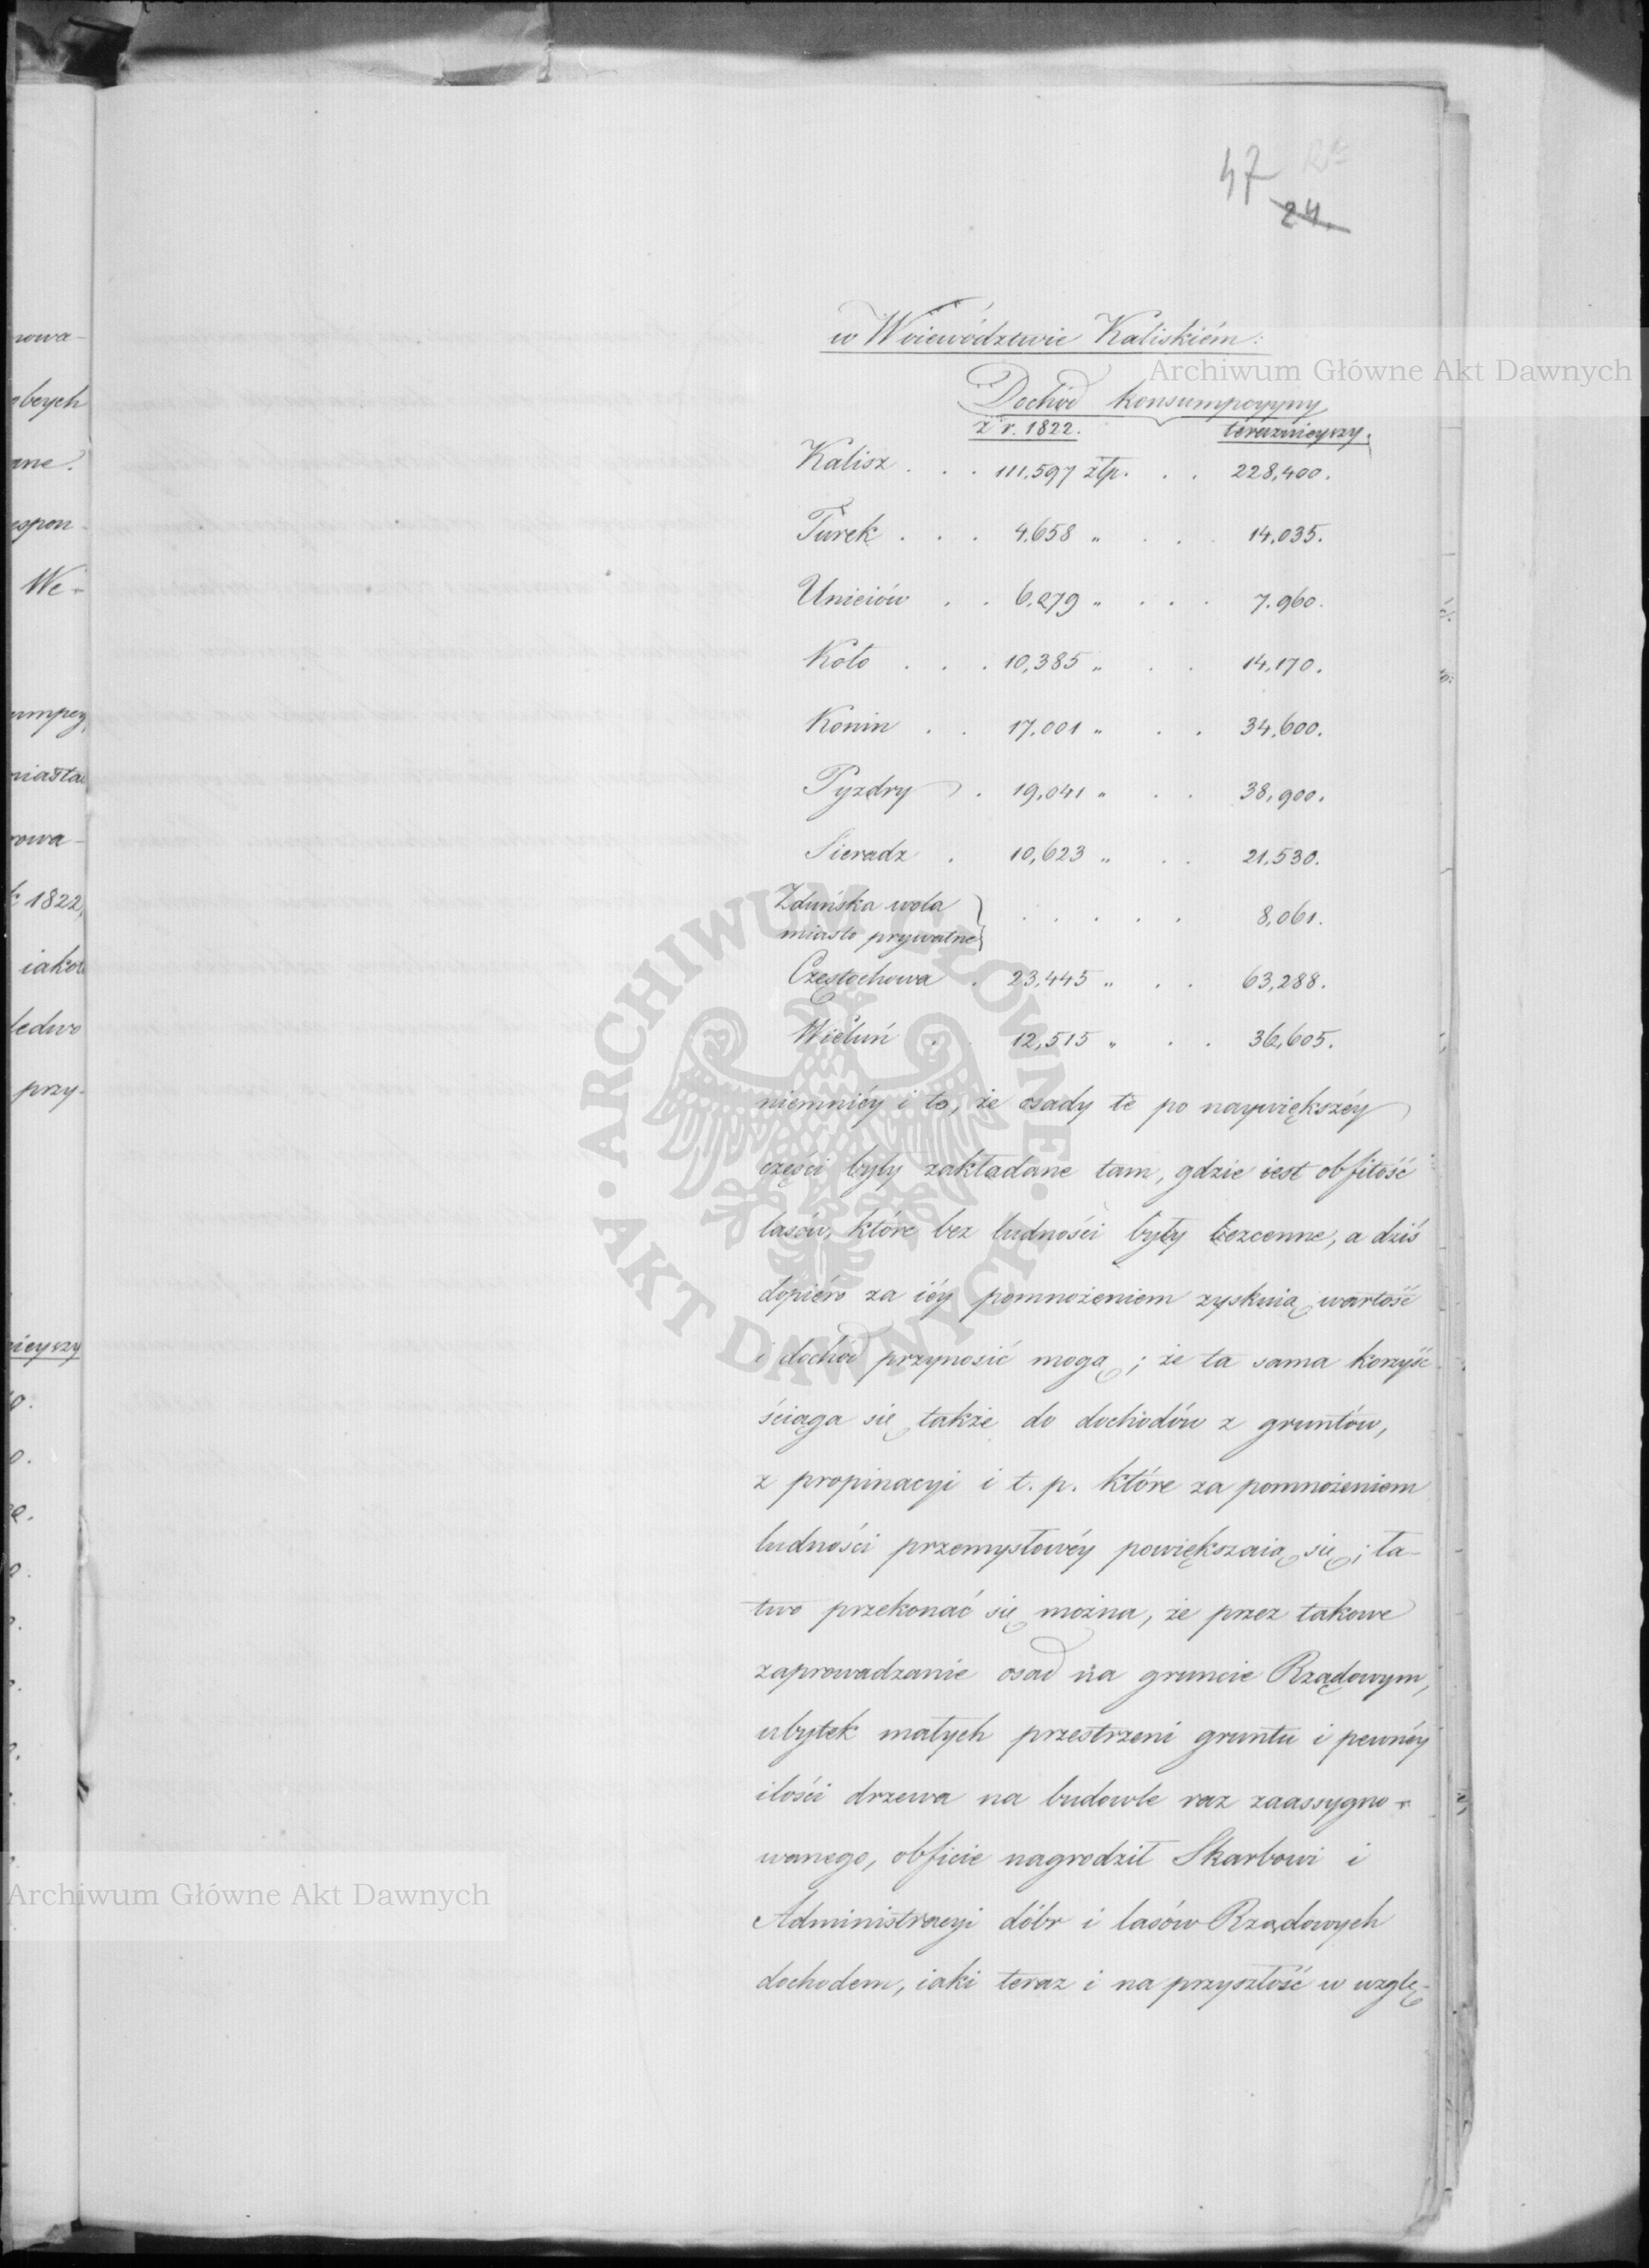 47
24.
w Woiewództwie Kaliskiém:
Dochód konsumpcyyny
z r. 1822. teraznieyszy.
Kalisz . . . 111,597 złp. . . 228,400.
Turek . . . 4,658 „ . . . 14,035.
Unieiów . . 6,279 „ . . . 7,960.
Koło . . . 10,385 „ . . 14,170.
Konin . . 17,001 „ . . 34,600.
Pyzdry . 19,041 „ . . 38,900.
Sieradz . 10,623 „ . . 21,530.
Zduńska wola
miasto prywatne } . . . . . 8,061.
Częstochowa . 23,445 „ . . 63,288.
Wieluń . 12,515 „ . . 36,605.
niemniéy i to, że osady te po naywiększéy
części były zakładane tam, gdzie iest obfitość
lasów, które bez ludności były bezcenne, a dziś
dopiéro za iéy pomnożeniem zyskuią wartość
i dochód przynosić mogą; że ta sama korzyść
ściąga się także do dochodów z gruntów,
z propinacyi i t. p. które za pomnożeniem
ludności przemysłowéy powiększaią się; ła-
two przekonać się można, że przez takowe
zaprowadzanie osad na gruncie Rządowym,
ubytek małych przestrzeni gruntu i pewnéy
ilości drzewa na budowle raz zaassygno-
wanego, obficie nagrodził Skarbowi i
Administracyi dóbr i lasów Rządowych
dochodem, iaki teraz i na przyszłość w wzglę-
nowa-
obcych
ane.
espon-
We-
umpcy
miasta
rowa-
1822,
iako
ledwo
przy-
nieyszy
Archiwum Główne Akt Dawnych
Archiwum Główne Akt Dawnych
ARCHIWUM GŁÓWNE
AKT DAWNYCH